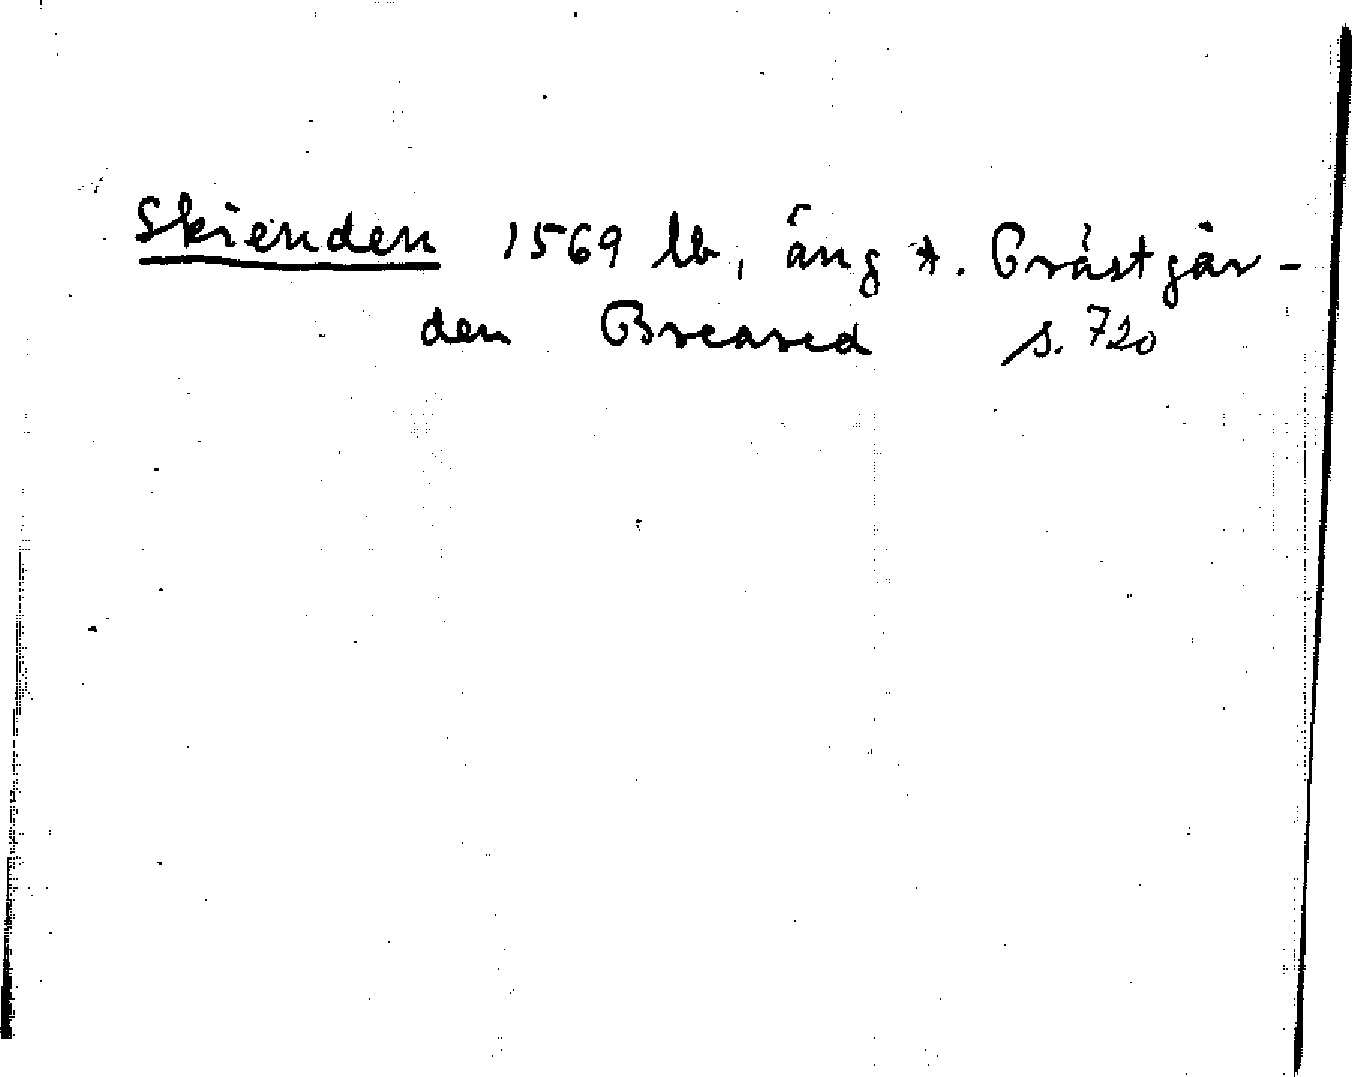 Skienden 1569 lb, äng t. Prästgår-
den Breared s. 720